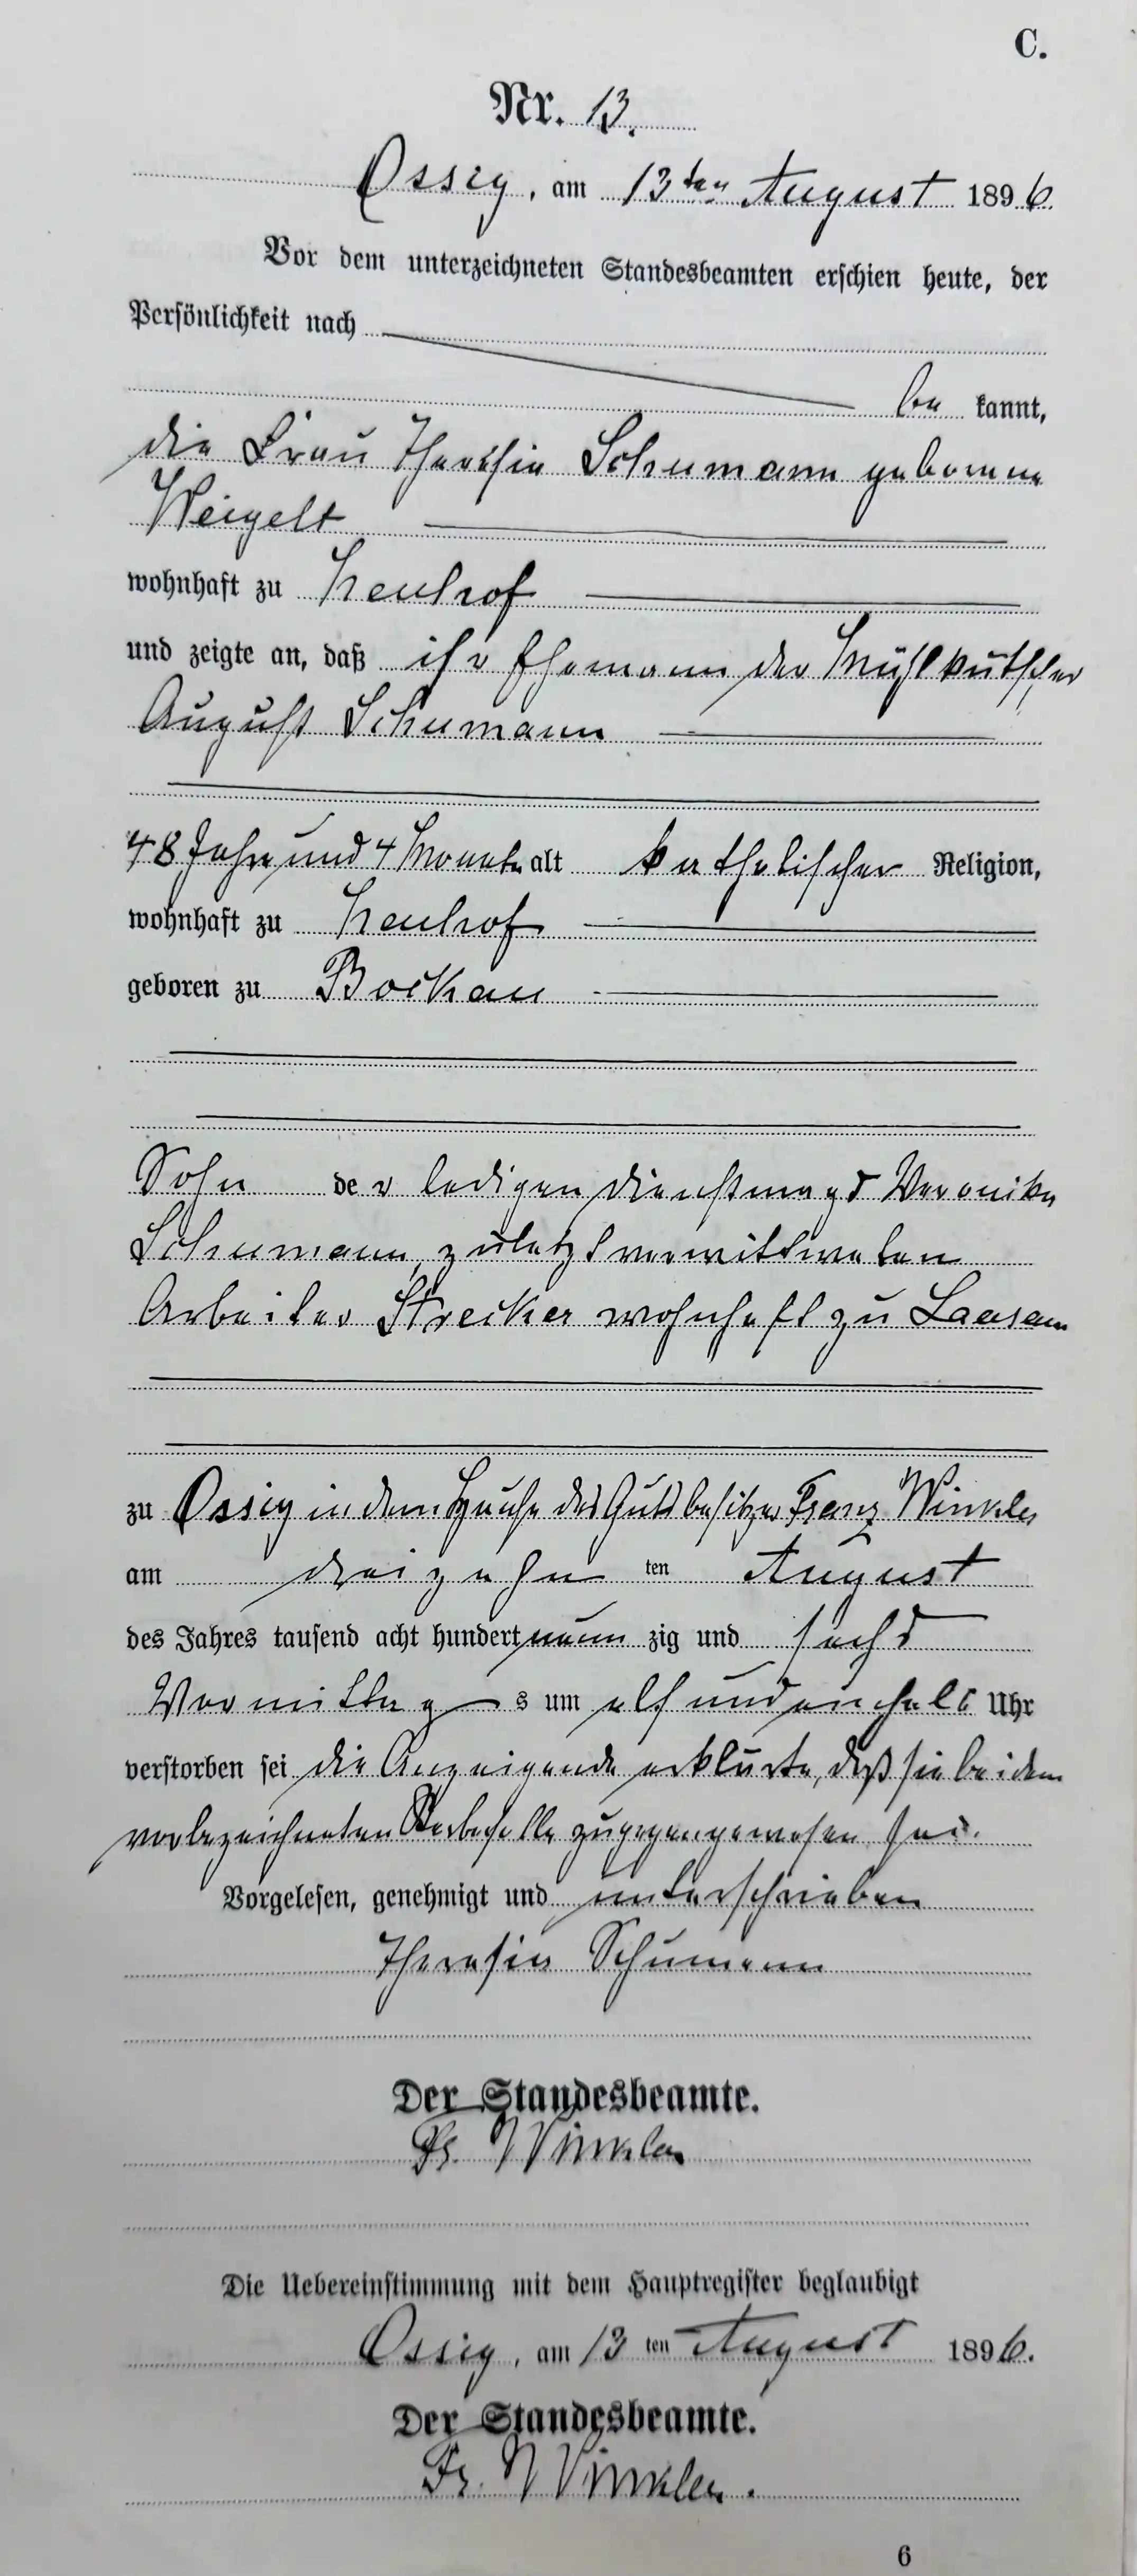 C.
Nr. 13.
Ossig, am 13ten August 1896.
Vor dem unterzeichneten Standesbeamten erschien heute, der
Persönlichkeit nach
be kannt,
die Frau Theresia Schumann geborene
Weigelt
wohnhaft zu Neuhof
und zeigte an, daß ihr Ehemann der Mühlkutscher
August Schumann
48 Jahre und 4 Monate alt katholischer Religion,
wohnhaft zu Neuhof
geboren zu Bockau
Sohn der ledigen Dienstmagd Veronika
Schumann, zuletzt verwittweten
Arbeiter Strecker wohnhaft zu Laasan
zu Ossig in dem Hause des Gutsbesitzer Franz Winkler
am dreizehn ten August
des Jahres tausend acht hundert neun zig und sechs
Vormittag s um elf und einhalb Uhr
verstorben sei die Anzeigende erklärte, daß sie bei dem
vorbezeichneten Sterbefalle zugegen gewesen sei.
Vorgelesen, genehmigt und unterschrieben
Theresia Schumann
Der Standesbeamte.
Fr. Winkler
Die Uebereinstimmung mit dem Hauptregister beglaubigt
Ossig, am 13 ten August 1896.
Der Standesbeamte.
Fr. Winkler.
6